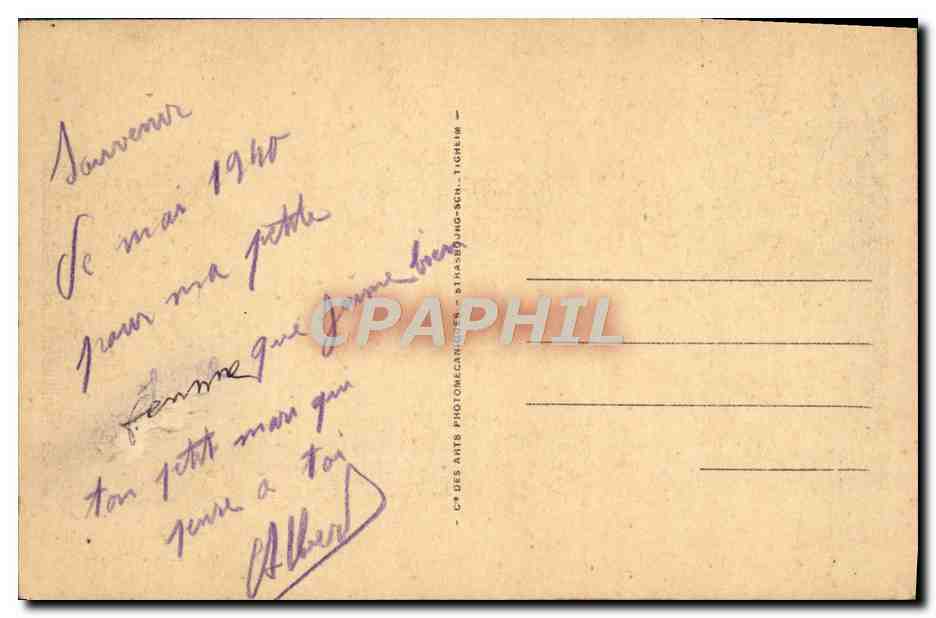 Souvenir
de mai 1940
pour ma petite
femme que j'aime bien
ton petit mari qui
pense a toi
Albert
- Cie DES ARTS PHOTOMECANIQUES - STRASBOURG-SCH..TIGHEIM -
CPAPHIL